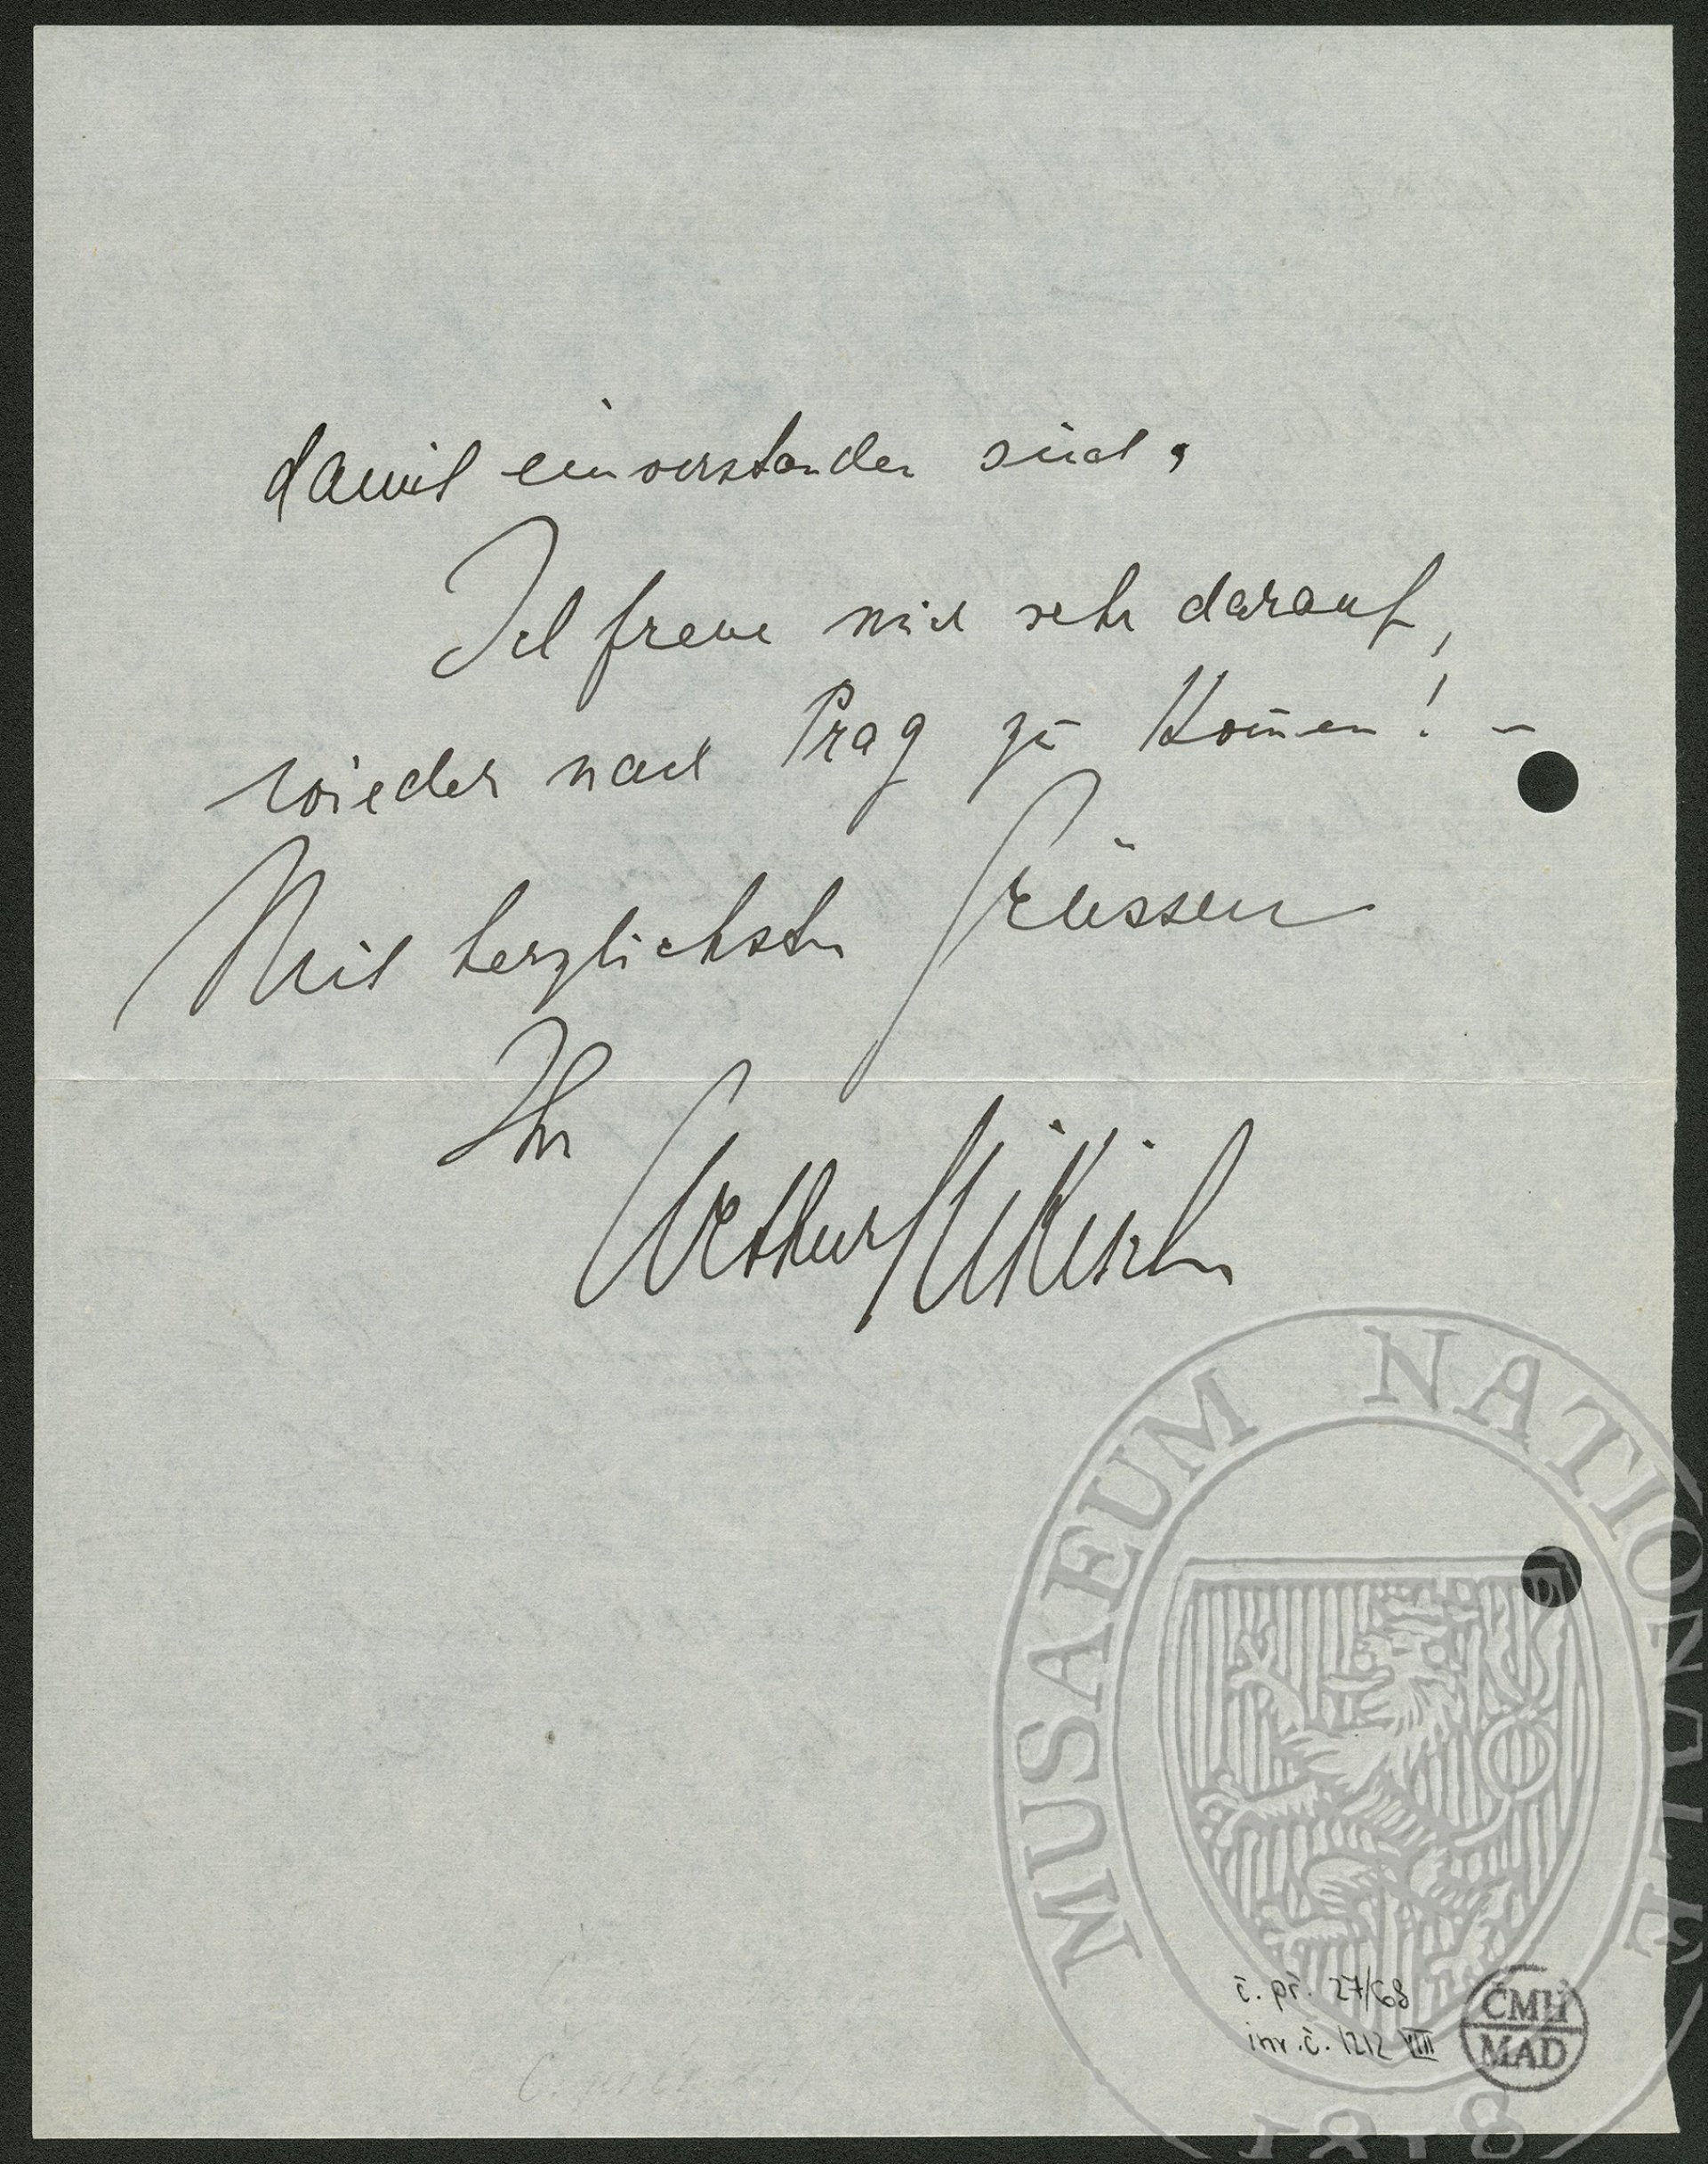 damit einverstanden sind.
Ich freue mich sehr darauf,
wieder nach Prag zu kom̄en! –
Mit herzlichsten Grüssen
Ihr
Arthur Nikisch
MUSAEUM NATIONALE
č. př. 27/68
inv. č. 1212 VIII
ČMH
MAD
1818